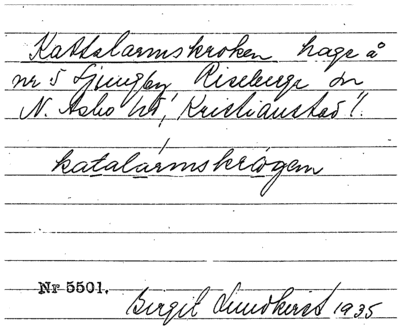 Kattalarmskroken hage å
nr 5 Ljungby, Riseberga sn
N. Åsbo hd, Kristianstad l.
katalármskrógen
Nr 5501.
Birgit Lundkvist 1935